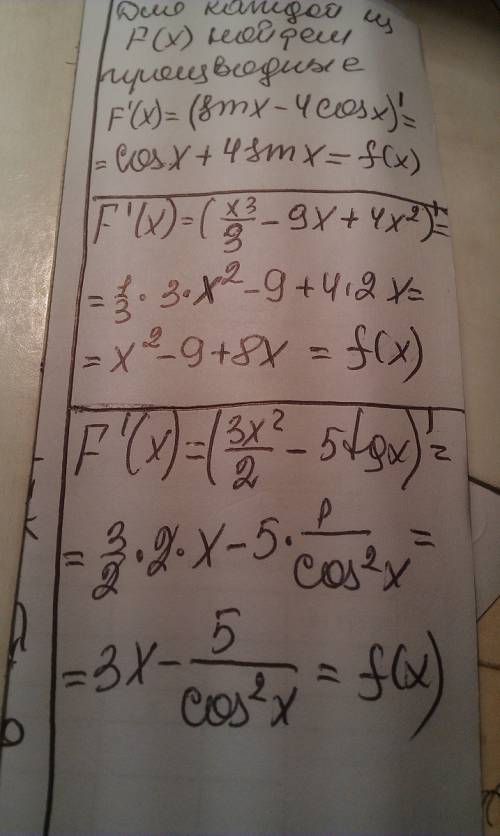 Для каждой из
F(x) найдем
производные
F'(x) = (sin x - 4cos x)' =
= cos x + 4 sin x = f(x)
F'(x) = (x³/3 - 9x + 4x²)' =
= 1/3 · 3 · x² - 9 + 4 · 2 x =
= x² - 9 + 8x = f(x)
F'(x) = (3x²/2 - 5 tg x)' =
= 3/2 · 2 · x - 5 · 1/cos²x =
= 3x - 5/cos²x = f(x)